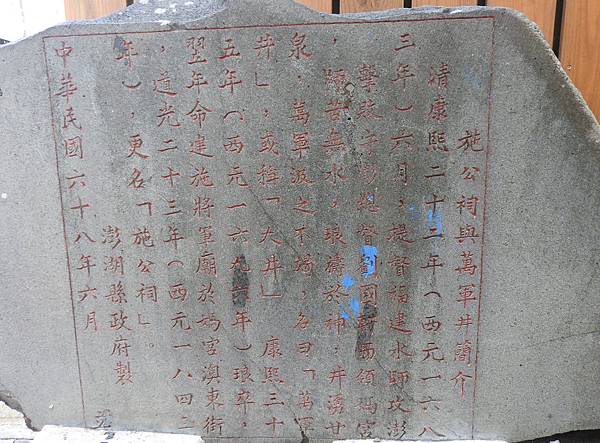 施公祠與萬軍井簡介
清康熙二十二年(西元一六八
三年)六月,提督福建水師攻澎
擊敗守彭總督劉國軒而領媽宮
,師苦無水,琅禱於神,井湧甘
泉,萬軍汲之不竭,名曰「萬軍
井」,或稱「大井」 康熙三十
五年(西元一六九六年)琅卒,
翌年命建施將軍廟於媽宮澳東街
,道光二十三年(西元一八四二
年),更名「施公祠」。
澎湖縣政府製
中華民國六十八年六月